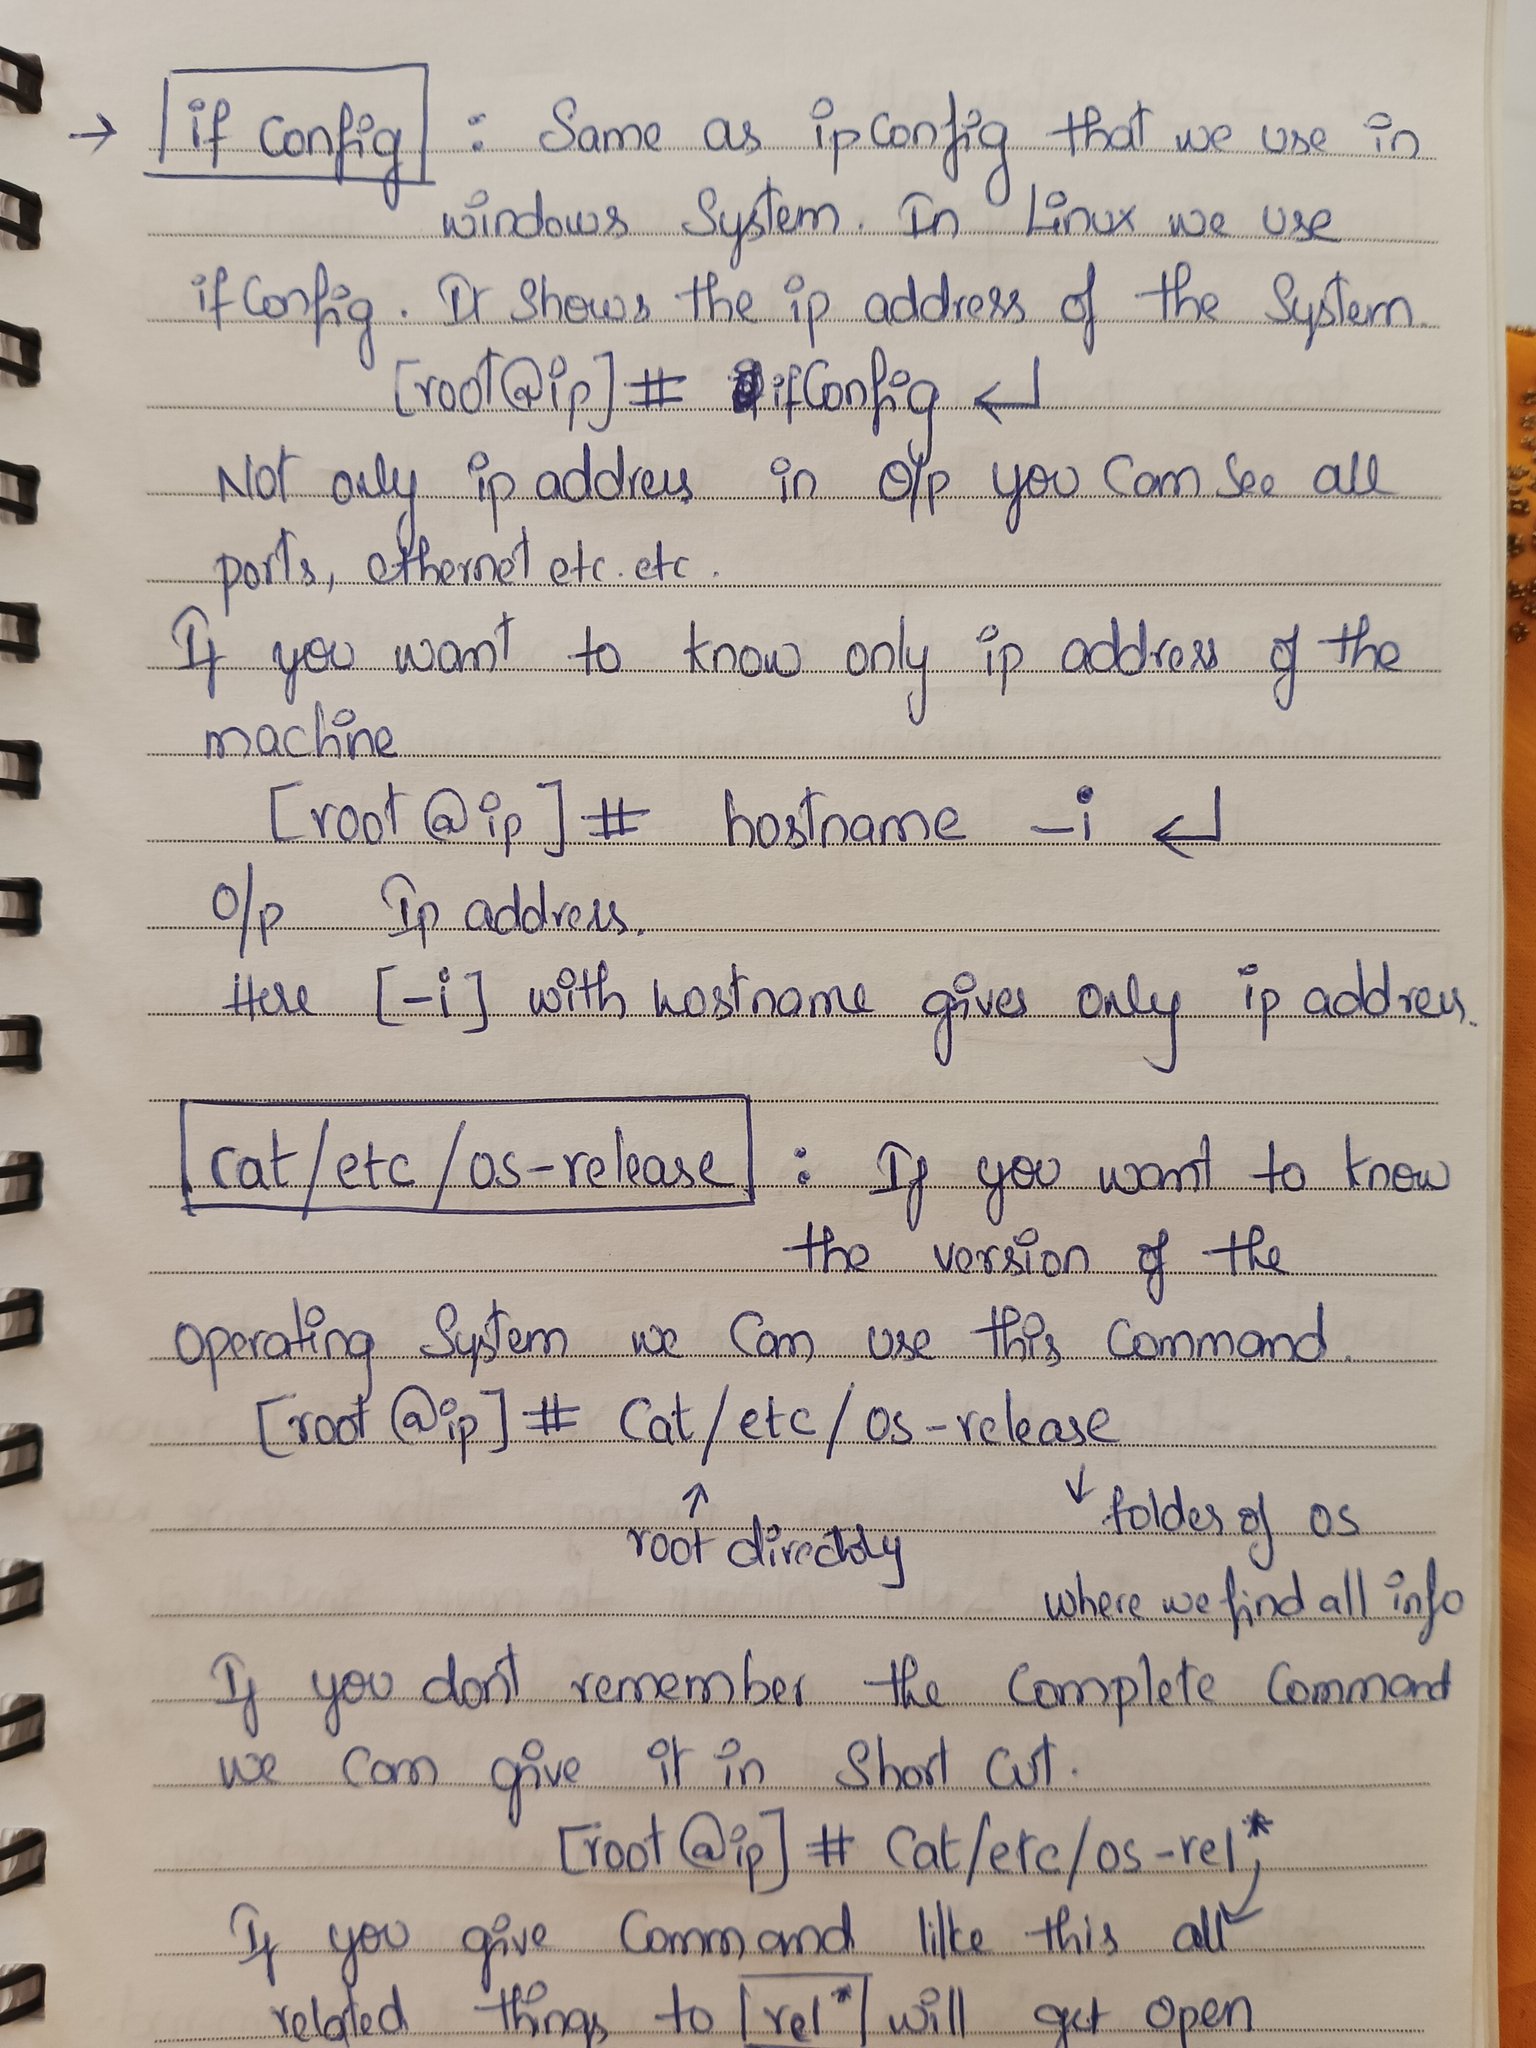 → if config : Same as ipconfig that we use in
windows System. In Linux we use
ifconfig. It shows the ip address of the System.
[root@ip]# ifconfig ↵
Not only ip address in o/p you can see all
ports, ethernet etc. etc.
If you want to know only ip address of the
machine
[root@ip]# hostname -i ↵
o/p Ip address.
Here [-i] with hostname gives only ip address.
cat/etc/os-release : If you want to know
the version of the
operating System we can use this command.
[root@ip]# cat/etc/os-release
↑ ↓ folder of os
root directory
where we find all info
If you don't remember the complete command
we can give it in short cut.
[root@ip]# cat/etc/os-rel*
If you give command like this all
related things to rel* will get open